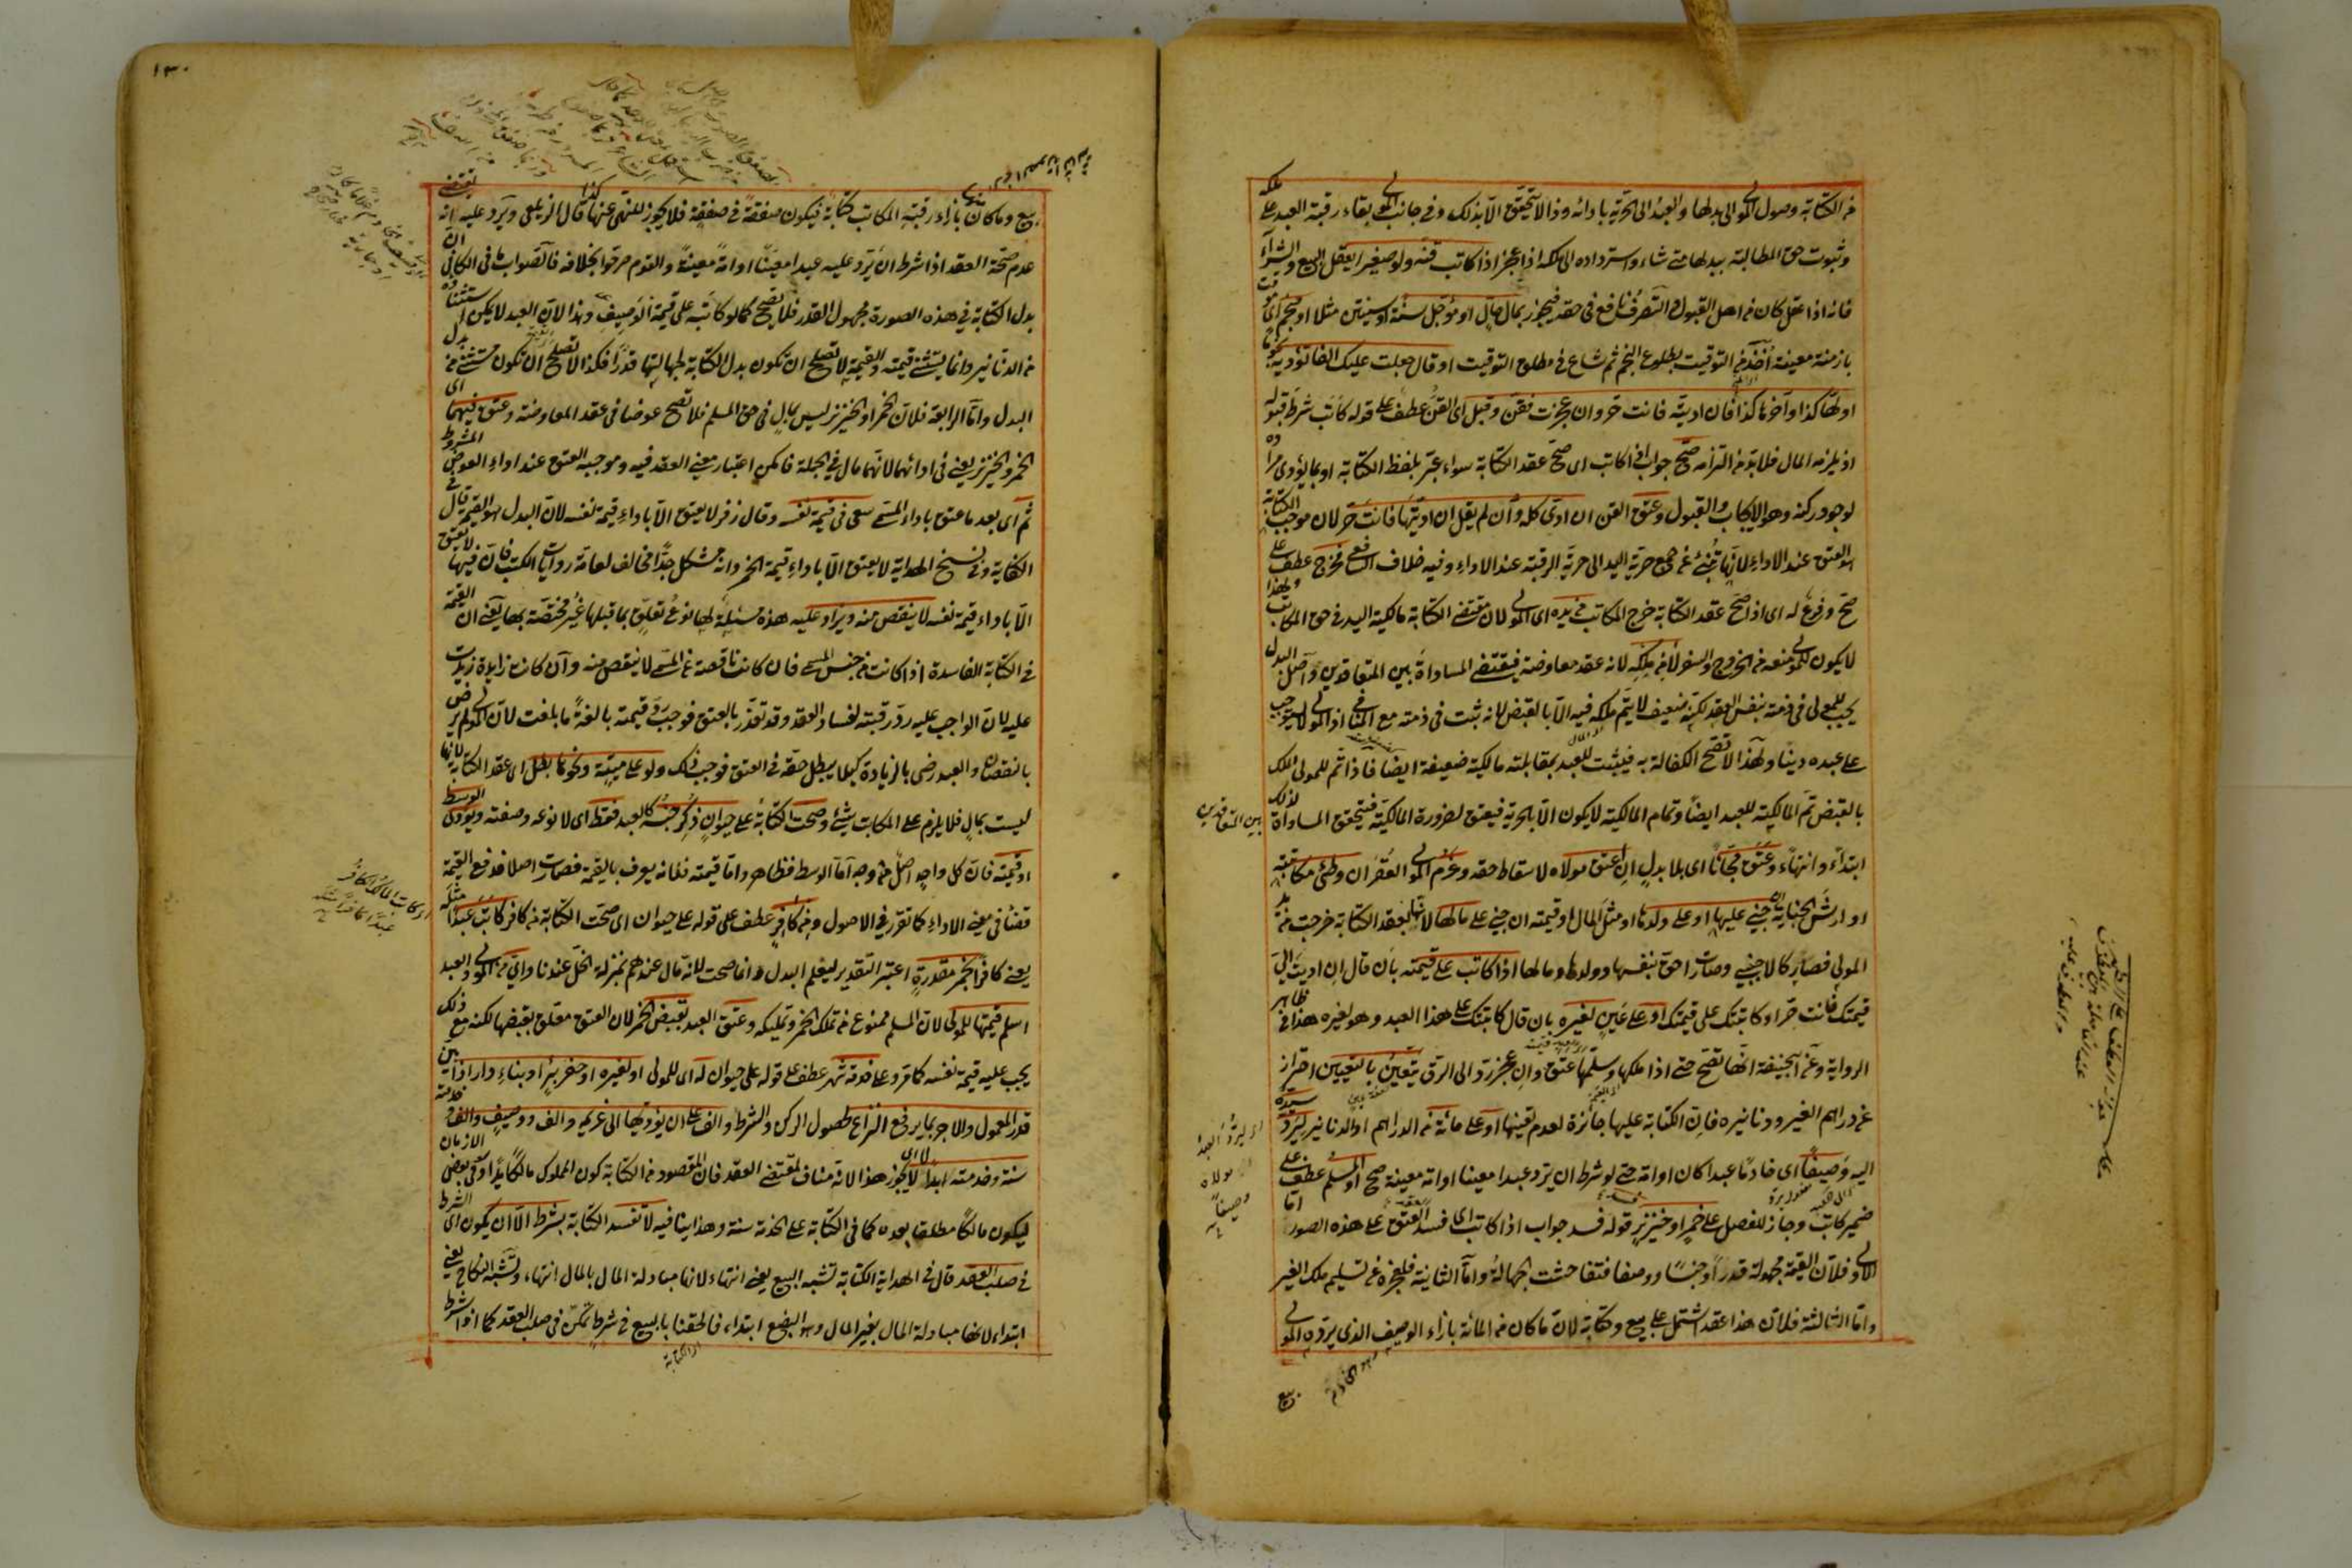 من الكتابة وصول المولى الى بدلها والعبد الى الحرية بادائه وذا لا يتحقق الا بذلك وفي جانب المولى بقاء رقبة العبد على ملكه
وثبوت حق المطالبة ببدلها متى شاء واسترداده الى ملكه اذا عجز اذا كاتب قنه ولو صغيرا يعقل البيع والشراء
فانه اذا عقل كان من اهل القبول والتصرف نافع في حقه فيجوز بمال حال او مؤجل سنة او سنتين مثلا او منجم اي موقت
بازمنة معينة اخذ من التوقيت بطلوع النجم ثم شاع في مطلق التوقيت او قال جعلت عليك الفا تؤديه نجوما
اولها كذا وآخرها كذا فان اديته فانت حر وان عجزت فقن وقبل اي القن عطف على قوله كاتب شرط قبوله
اذ يلزمه المال فلا بد من التزامه صح جواب اذا كاتب اي صح عقد الكتابة سواء عبر بلفظ الكتابة او بما يؤدي مراده
لوجود ركنه وهو الايجاب والقبول وعتق القن ان ادى كله وان لم يقل ان اديتها فانت حر لان موجب الكتابة
هو العتق عند الاداء لانها تنبئ عن جمع حرية اليد الى حرية الرقبة عند الاداء وفيه خلاف الشافعي فخرج عطف على
صح وفرع له اي اذا صح عقد الكتابة خرج المكاتب من يده اي المولى لان مقتضى الكتابة مالكية اليد في حق المكاتب ولهذا
لا يكون للمولى منعه من الخروج والسفر لا من ملكه لانه عقد معاوضة فيقتضي المساواة بين المتعاقدين واصل البدل
يجب للمولى في ذمته بنفس العقد لكنه ضعيف لا يتم ملكه فيه الا بالقبض لانه ثبت في ذمته مع المنافي اذ المولى لا يستوجب
على عبده دينا ولهذا لا تصح الكفالة به فيثبت للعبد بمقابلته مالكية ضعيفة ايضا فاذا تم للمولى الملك
بالقبض تم المالكية للعبد ايضا وتمام المالكية لا يكون الا بالحرية فيعتق لضرورة المالكية فيتحقق المساواة لذلك
بين المتعاقدين
ابتداء وانتهاء وعتق مجانا اي بلا بدل ان اعتق مولاه لاسقاط حقه وغرم المولى العقر ان وطئ مكاتبته
او ارش الجناية ان جنى عليها او على ولدها او مثل المال او قيمته ان جنى على مالها لانها بعقد الكتابة خرجت من يد
المولى فصار كالاجنبي وصارت احق بنفسها وولدها ومالها اذا كاتب على قيمته بان قال ان اديت الي
قيمتك فانت حر او كاتبتك على قيمتك او على عين لغيره بان قال كاتبتك على هذا العبد وهو لغيره هذا في ظاهر
الرواية وعن ابي حنيفة انها تصح حتى اذا ملكها وسلمها عتق وان عجز رد الى الرق يتعين بالتعيين احتراز
عن دراهم الغير ودنانيره فان الكتابة عليها جائزة لعدم تعينها او على مائة من الدراهم او الدنانير ليرد سيده
اليه وصيفا اي خادما عبدا كان او امة حتى لو شرط ان يرد عبدا معينا او امة معينة صح او المسلم عطف على
اي ليرد العبد مولاه وصيفا
ضمير كاتب وجاز للفصل على خمر او خنزير قوله فسد جواب اذا كاتب اي فسد العقد على هذه الصور اما
الاولى فلان القيمة مجهولة قدرا وجنسا ووصفا فتفاحشت الجهالة واما الثانية فلعجزه عن تسليم ملك الغير
واما الثالثة فلان هذا عقد اشتمل على بيع وكتابة لان ما كان من المائة بازاء الوصيف الذي يرده المولى
بيع
١٣٠
بيع وما كان منها بازاء رقبة المكاتب كتابة فيكون صفقة في صفقة فلا يجوز للنهي عنها كذا قال الزيلعي ويرد عليه انه يقتضي
عدم صحة العقد اذا شرط ان يرد عليه عبدا معينا او امة معينة والقوم صرحوا بخلافه فالصواب ما في الكافي ان
بدل الكتابة في هذه الصورة مجهول القدر فلا يصح كما لو كاتبه على قيمة الوصيف وهذا لان العبد لا يمكن استثناؤه
من الدنانير وانما يستثنى قيمته والقيمة لا تصلح ان تكون بدل الكتابة لجهالتها قدرا فكذا لا تصلح ان تكون مستثنى من بدل
البدل واما الرابعة فلان الخمر او الخنزير ليس بمال في حق المسلم فلا تصح عوضا في عقد المعاوضة وعتق فيهما اي
الخمر والخنزير يعني في ادائهما لانهما مال في الجملة فامكن اعتبار معنى العقد فيه وموجبه العتق عند اداء العوض المشروط
ثم اي بعد ما عتق باداء المسمى سعى في قيمة نفسه وقال زفر لا يعتق الا باداء قيمة نفسه لان البدل هو القيمة قال في
الكفاية وفي نسخ الهداية لا يعتق الا باداء قيمة الخمر وانه مشكل جدا مخالف لعامة روايات الكتب فان فيها لا يعتق
الا باداء قيمة نفسه لا ينقص منه ويزاد عليه هذه مسئلة لها نوع تعلق بما قبلها غير مختصة بها يعني ان القيمة
في الكتابة الفاسدة اذا كانت من جنس المسمى فان كانت ناقصة عن المسمى لا ينقص منه وان كانت زايدة زيدت
عليه لان الواجب عليه رد رقبته لفساد العقد وقد تعذر بالعتق فوجب رد قيمته بالغة ما بلغت لان المولى لم يرض
بالنقصان والعبد رضي بالزيادة كيلا يبطل حقه في العتق فوجب ذلك ولو على ميتة ونحوها بطل اي عقد الكتابة لانها
ليست بمال فلا يلزم على المكاتب شيء وصحت الكتابة على حيوان ذكر جنسه كالعبد فقط اي لا نوعه وصفته ويؤدى الوسط
او قيمته فان كل واحد اصل من وجه اما الوسط فظاهر واما قيمته فلانه يعرف بالقيمة فصارت اصلا فدفع القيمة
قضاء في معنى الاداء كما تقرر في الاصول ومن كافر عطف على قوله على حيوان اي صحت الكتابة من كافر كاتب عبدا مثله
يعني كافرا بخمر مقدرة اعتبر التقدير ليعلم البدل وانما صحت لانه مال عندهم بمنزلة الخل عندنا واي من المولى والعبد
اسلم قيمتها للمولى لان المسلم ممنوع من تملك الخمر وتمليكه وعتق العبد بقبض الخمر لان العتق معلق بقبضها لكنه مع ذلك
يجب عليه قيمة نفسه كما مر وعلى خدمة شهر عطف على قوله على حيوان له اي للمولى او لغيره او حفر بئر او بناء دار اذا بين
قدر المعمول والاجر بما يرفع النزاع لحصول الركن والشرط والف على ان يؤديها الى غريمه والف ووصيف والف وخدمته
سنة وخدمته ابدا لا اي لا يجوز هذا لانه مناف لمقتضى العقد فان المقصود من الكتابة كون المملوك مالكا يدا في بعض الازمان
ليكون مالكا مطلقا بعده كما في الكتابة على الخدمة سنة وهذا ينافيه لا تفسد الكتابة بشرط الا ان يكون اي الشرط
في صلب العقد قال في الهداية الكتابة تشبه البيع يعني انتهاء لانها مبادلة المال بالمال انتهاء وتشبه النكاح يعني
ابتداء لانها مبادلة المال بغير المال وهو البضع ابتداء فالحقنا بالبيع في شرط تمكن في صلب العقد كما اذا شرط
اي الكتابة